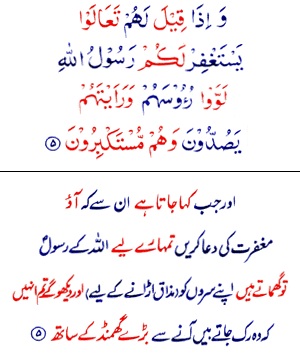 وَ اِذَا قِيْلَ لَهُمْ تَعَالَوْا
يَسْتَغْفِرْ لَكُمْ رَسُوْلُ اللهِ
لَوَّوْا رُءُوْسَهُمْ وَرَاَيْتَهُمْ
يَصُدُّوْنَ وَهُمْ مُّسْتَكْبِرُوْنَ ۵
اور جب کہا جاتا ہے ان سے کہ آؤ
مغفرت کی دعا کریں تمہارے لیے اللہ کے رسولؐ
تو گھماتے ہیں اپنے سروں کو (مذاق اڑانے کے لیے) اور دیکھو گے تم انہیں
کہ وہ رک جاتے ہیں آنے سے بڑے گھمنڈ کے ساتھ ۵